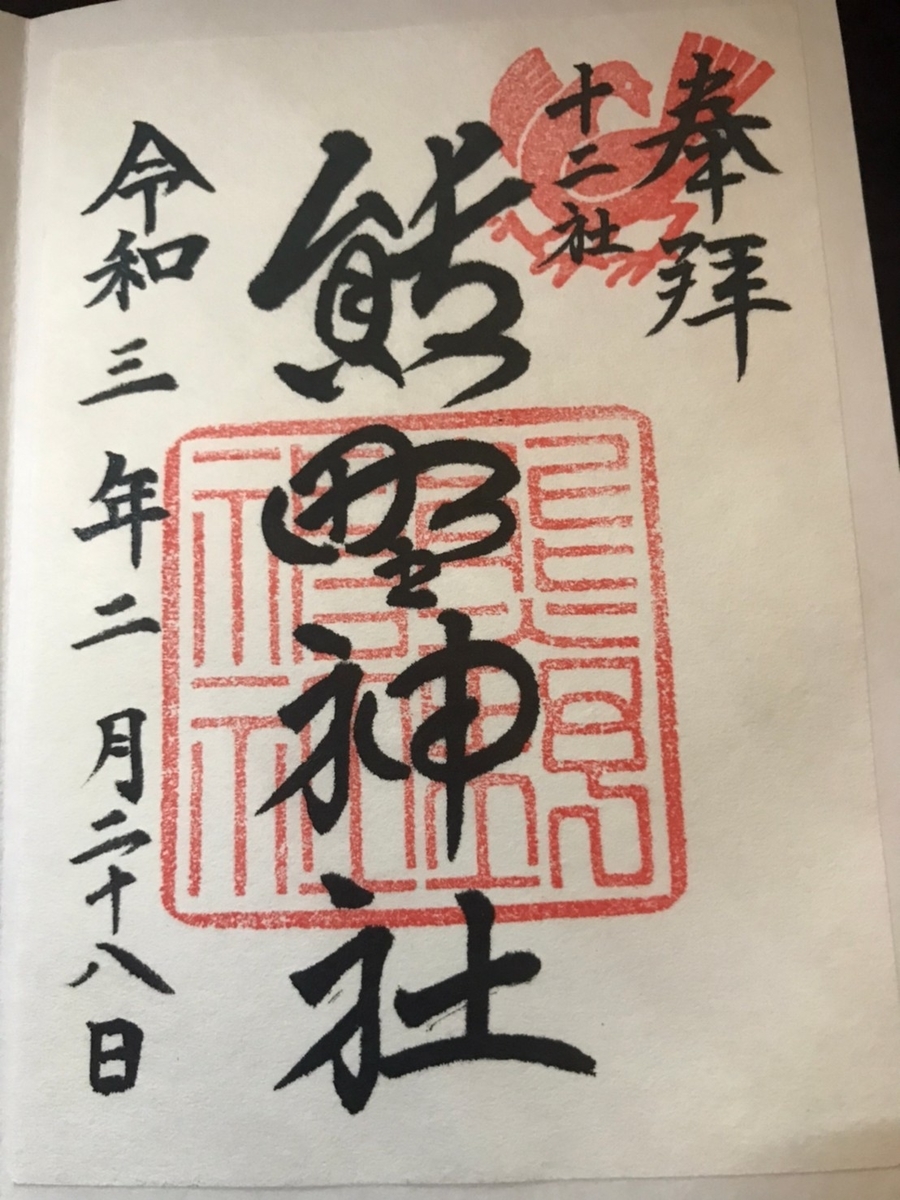 奉拝
十二社
熊野神社
令和三年二月二十八日